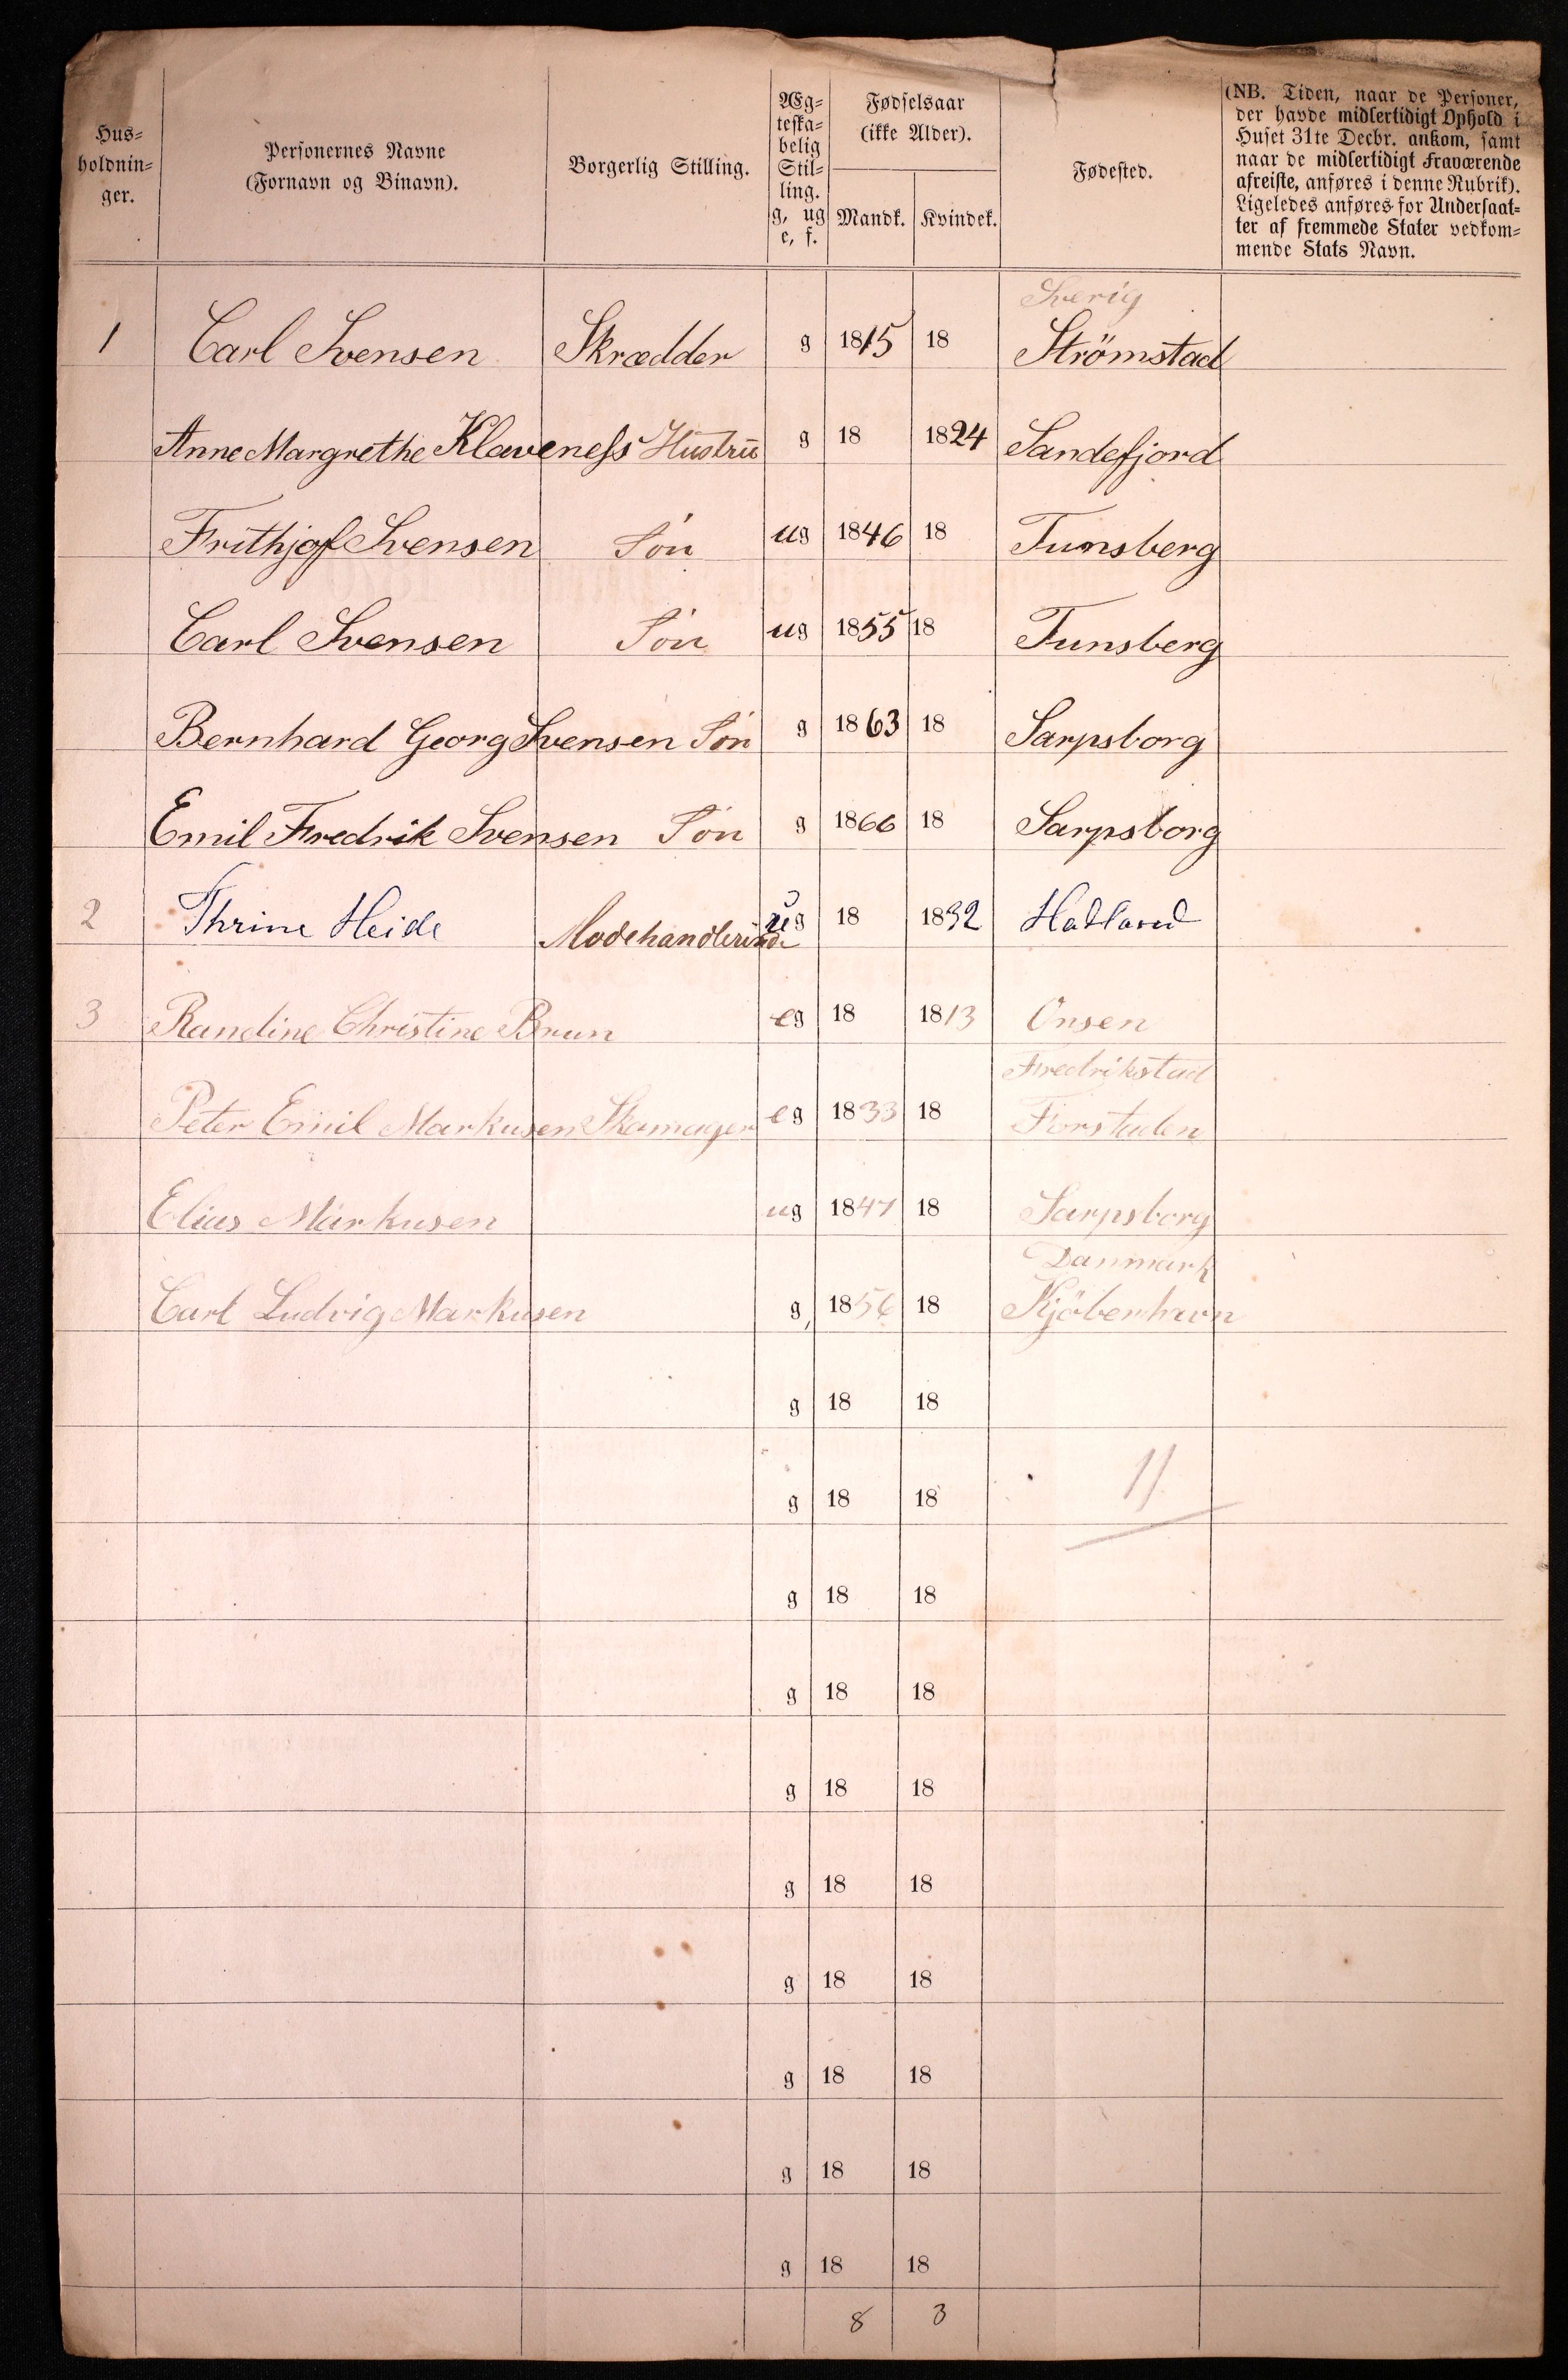 Hus-
holdnin-
ger.
Personernes Navne
(Fornavn og Binavn).
Borgerlig Stilling.
Æg-
teska-
belig
Stil-
ling.
g, ug
e, f.
Fødselsaar
(ikke Alder).
Mandk. Kvindek.
Fødested.
(NB. Tiden, naar de Personer,
der havde midlertidigt Ophold i
Huset 31te Decbr. ankom, samt
naar de midlertidigt Fraværende
afreiste, anføres i denne Rubrik).
Ligeledes anføres for Undersaat-
ter af fremmede Stater vedkom-
mende Stats Navn.
Sverig
1 Carl Svensen Skrædder g 1815 18 Strömstad
Anne Margrethe Klaveness Hustru g 18 1824 Sandefjord
Frithjof Svensen Søn ug 1846 18 Tunsberg
Carl Svensen Søn ug 1855 18 Tunsberg
Bernhard Georg Svensen Søn g 1863 18 Sarpsborg
Emil Fredrik Svensen Søn g 1866 18 Sarpsborg
2 Thrine Heide Modehandlerinde ug 18 1832 Hadland
3 Randine Christine Brun eg 18 1813 Onsen
Fredrikstad
Peter Emil Markusen Skomager eg 1833 18 Forstaden
Elias Markusen ug 1847 18 Sarpsborg
Danmark
Carl Ludvig Markusen g 1856 18 Kjöbenhavn
g 18 18
g 18 18 11
g 18 18
g 18 18
g 18 18
g 18 18
g 18 18
g 18 18
g 18 18
g 18 18
8 3